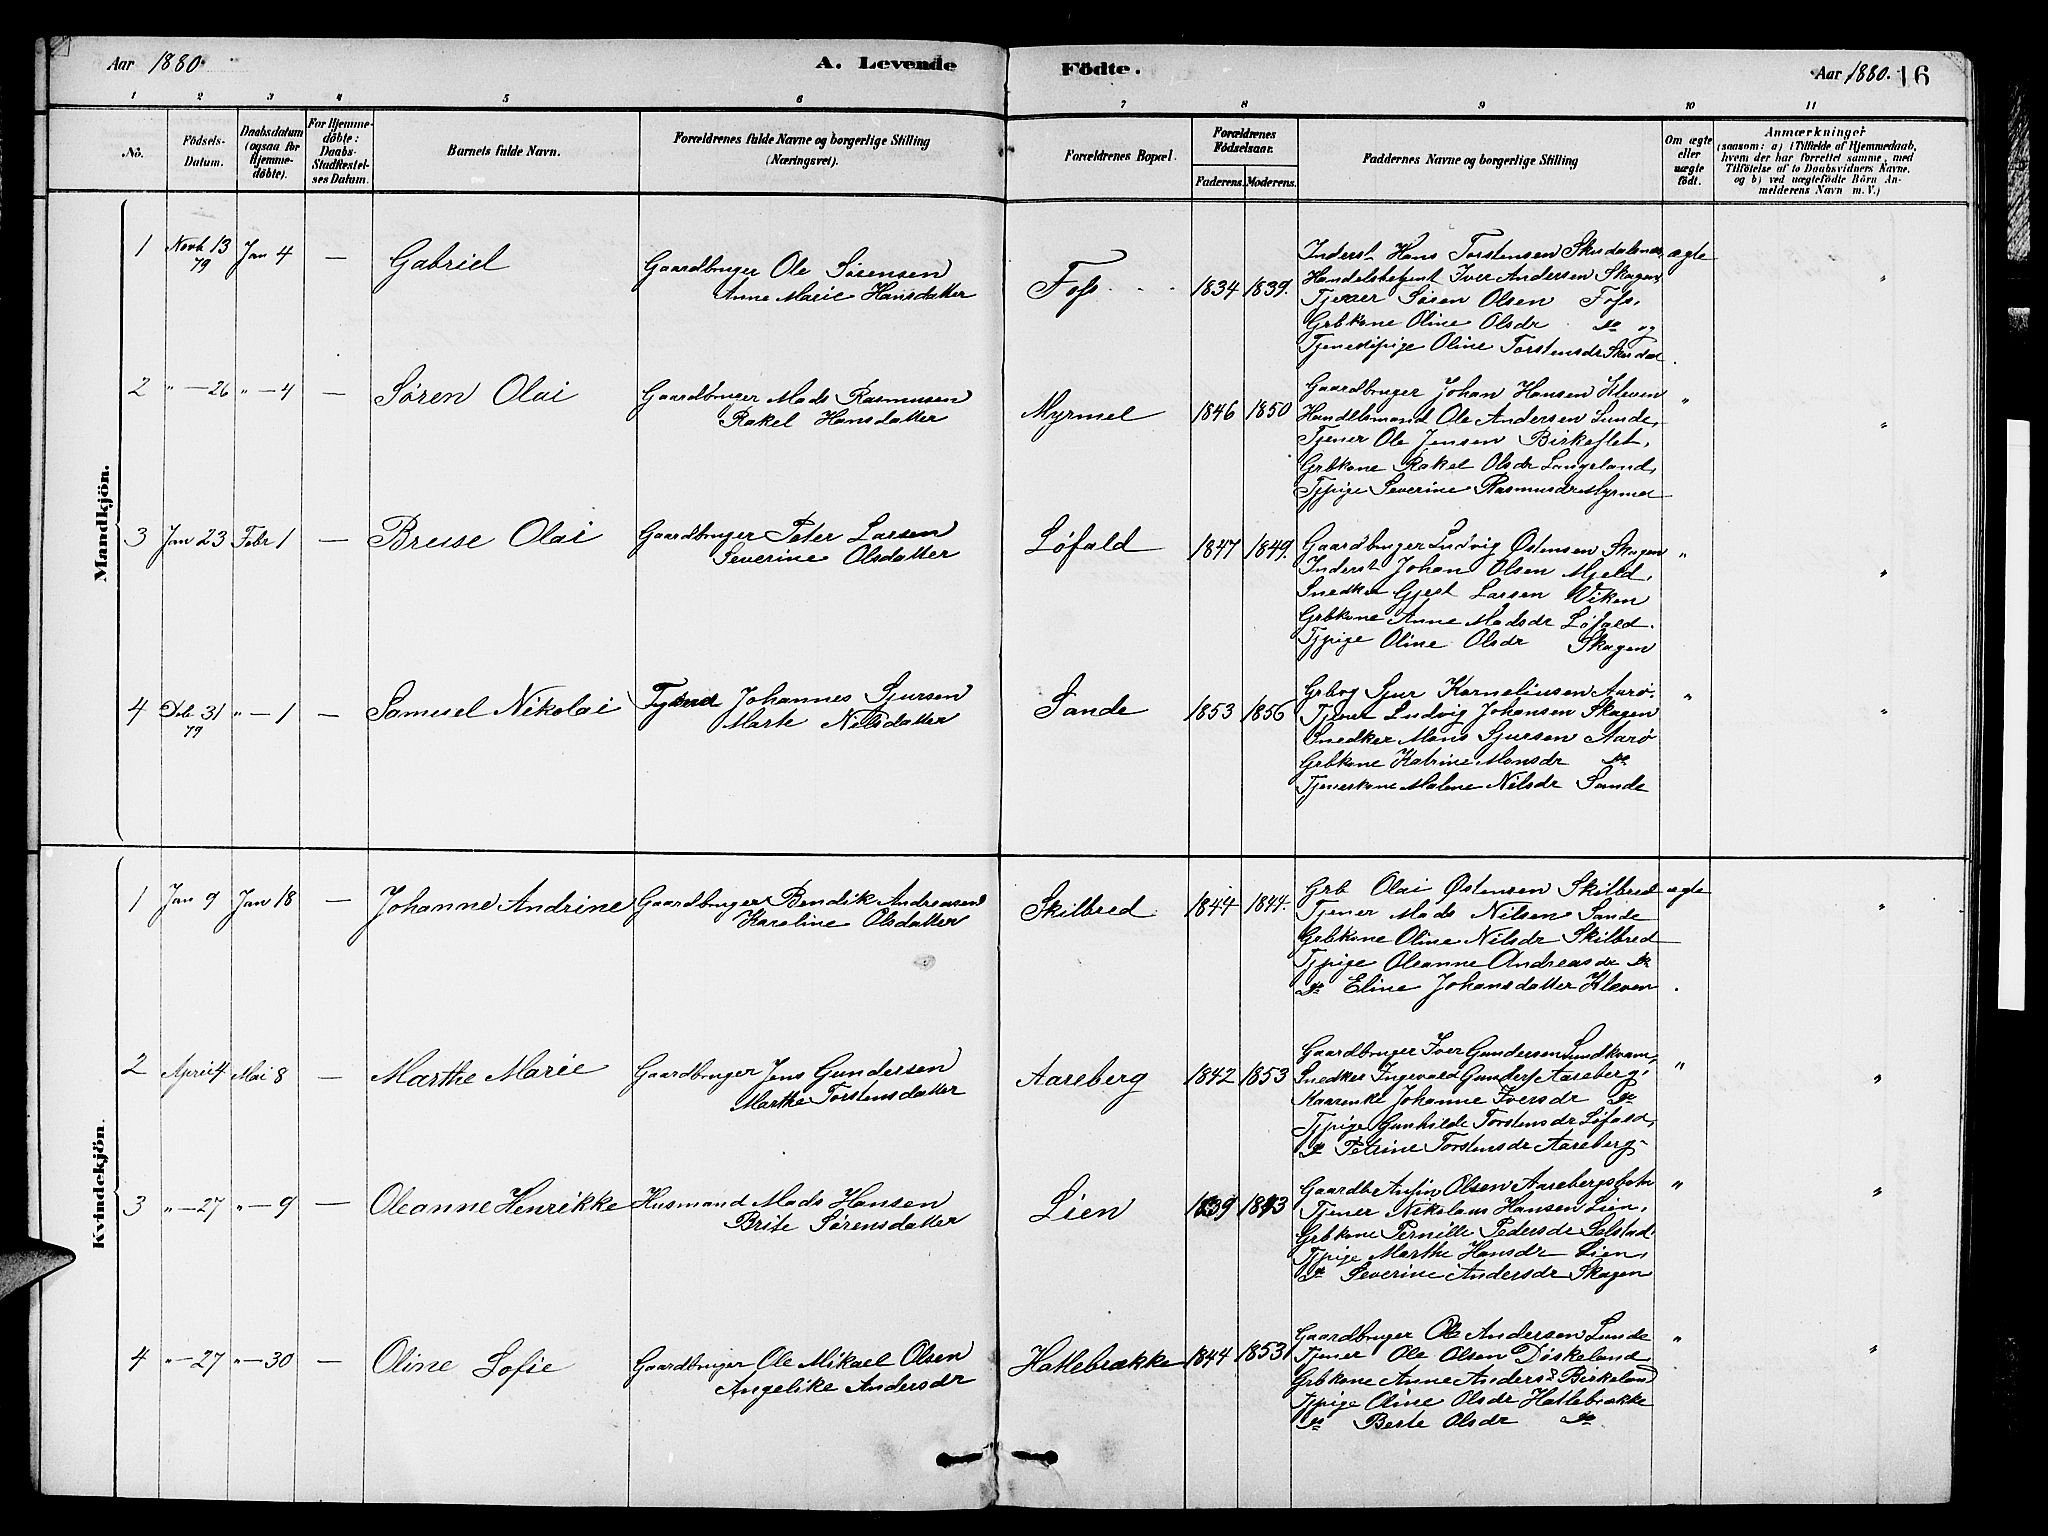 Aar 1880.
A. Levende Födte.
Aar 1880. 16
1 2 3 4 5 6 7 8 9 10 11
No.
Födsels-Datum.
Daabsdatum (ogsaa for Hjemme-döbte).
For Hjemme-döbte: Daabs-Stadfæstel-ses Datum.
Barnets fulde Navn.
Forældrenes fulde Navne og borgerlige Stilling (Næringsvei).
Forældrenes Bopæl.
Forældrenes Födselsaar.
Faderens. Moderens.
Faddernes Navne og borgerlige Stilling
Om ægte eller uægte födt.
Anmærkninger
(saasom: a) i Tilfælde af Hjemmedaab,
hvem der har forrettet samme, med
Tilföielse af to Daabsvidners Navne.
og b) ved uægtefödte Börn An-
melderens Navn m. V.)
Mandkjön.
1 Novb 13 79 Jan 4 — Gabriel
Gaardbruger Ole Sørensen
Anne Marie Hansdatter
Foss 1834 1839.
Inderst Hans Torstensen Skusdalsnes, ægte "
Handelsbetjent Iver Andersen Skagen,
Tjener Søren Olsen Foss,
Grbkone Oline Olsdr do og
Tjenestpige Oline Torstensdr
2 " — 26 " — 4 — Søren Olai
Gaardbruger Mads Rasmusen
Rakel Hansdatter
Myrmel 1846 1850
Gaardbruger Johan Hansen Kleven " "
Handelsmand Ole Andersen Lunde,
Tjener Ole Jensen Birkeflet,
Grbkone Rakel Olsdr Langeland,
Tjpige Severine Rasmusdr Myrmel
3 Jan 23 Febr 1 — Brese Olai
Gaardbruger Peter Larsen
Severine Olsdatter
Løfald 1847 1849.
Gaardbruger Ludvig Østensen Skagen " "
Inderst Johan Olsen Mjeld,
Snedker Gjest Larsen Viken
Grbkone Anne Madsdr Løfald.
Tjpige Oline Olsdr Skagen
4 Deb 31 79 " — 1 — Samuel Nikolai
Tjener Johannes Sjursen
Marte Nilsdatter
Sande 1853 1856
Grbrg Sjur Korneliusen Aarø. " "
Tjener Ludvig Johansen Skagen
Snedker Mons Sjursen Aarø
Grbkone Katrine Monsdr do
Tjeneskone Malene Nilsdr Sande
Kvindekjön.
1 Jan 9 Jan 18 — Johanne Andrine
Gaardbruger Bendik Andreasen
Karoline Olsdatter
Skilbred 1844 1844.
Grb Olai Østensen Skilbred ægte "
Tjener Mads Nilsen Sande
Grbkone Oline Nilsdr Skilbred
Tjpige Oleanne Andreasdr do
do Eline Johansdatter Kleven.
2 April 4 Mai 8 — Marthe Marie
Gaardbruger Jens Gundersen
Marthe Torstensdatter
Aareberg 1842 1853
Gaardbruger Iver Gundersen Sundkvam, " "
Snedker Ingevald Gunders Aareberg,
Kaarenke Johanne Iversdr do
Tjpige Gunhilde Torstensdr Løfald,
do Petrine Torstensdr Aareberg
3 " — 27 " — 9 — Oleanne Henrikke
Husmand Mads Hansen
Brite Sørensdatter
Lien 1839 1843
Gaardb Anfin Olsen Aarebergsbotn " "
Tjener Nikolaus Hansen Lien,
Grbkone Pernille Pedersdr Selstad.
Tjpige Marthe Hansdr Lien,
do Severine Andersdr Skagen
4 " — 27 " — 30 — Oline Sofie
Gaardbruger Ole Mikael Olsen
Angelike Andersdr
Hatlebrække 1844 1853
Gaardbruger Ole Andersen Lunde " "
Tjener Ole Olsen Døskeland
Grbkone Anne Anders Birkeland
Tjpige Oline Olsdr Hatlebrække
do Berte Olsdr do.